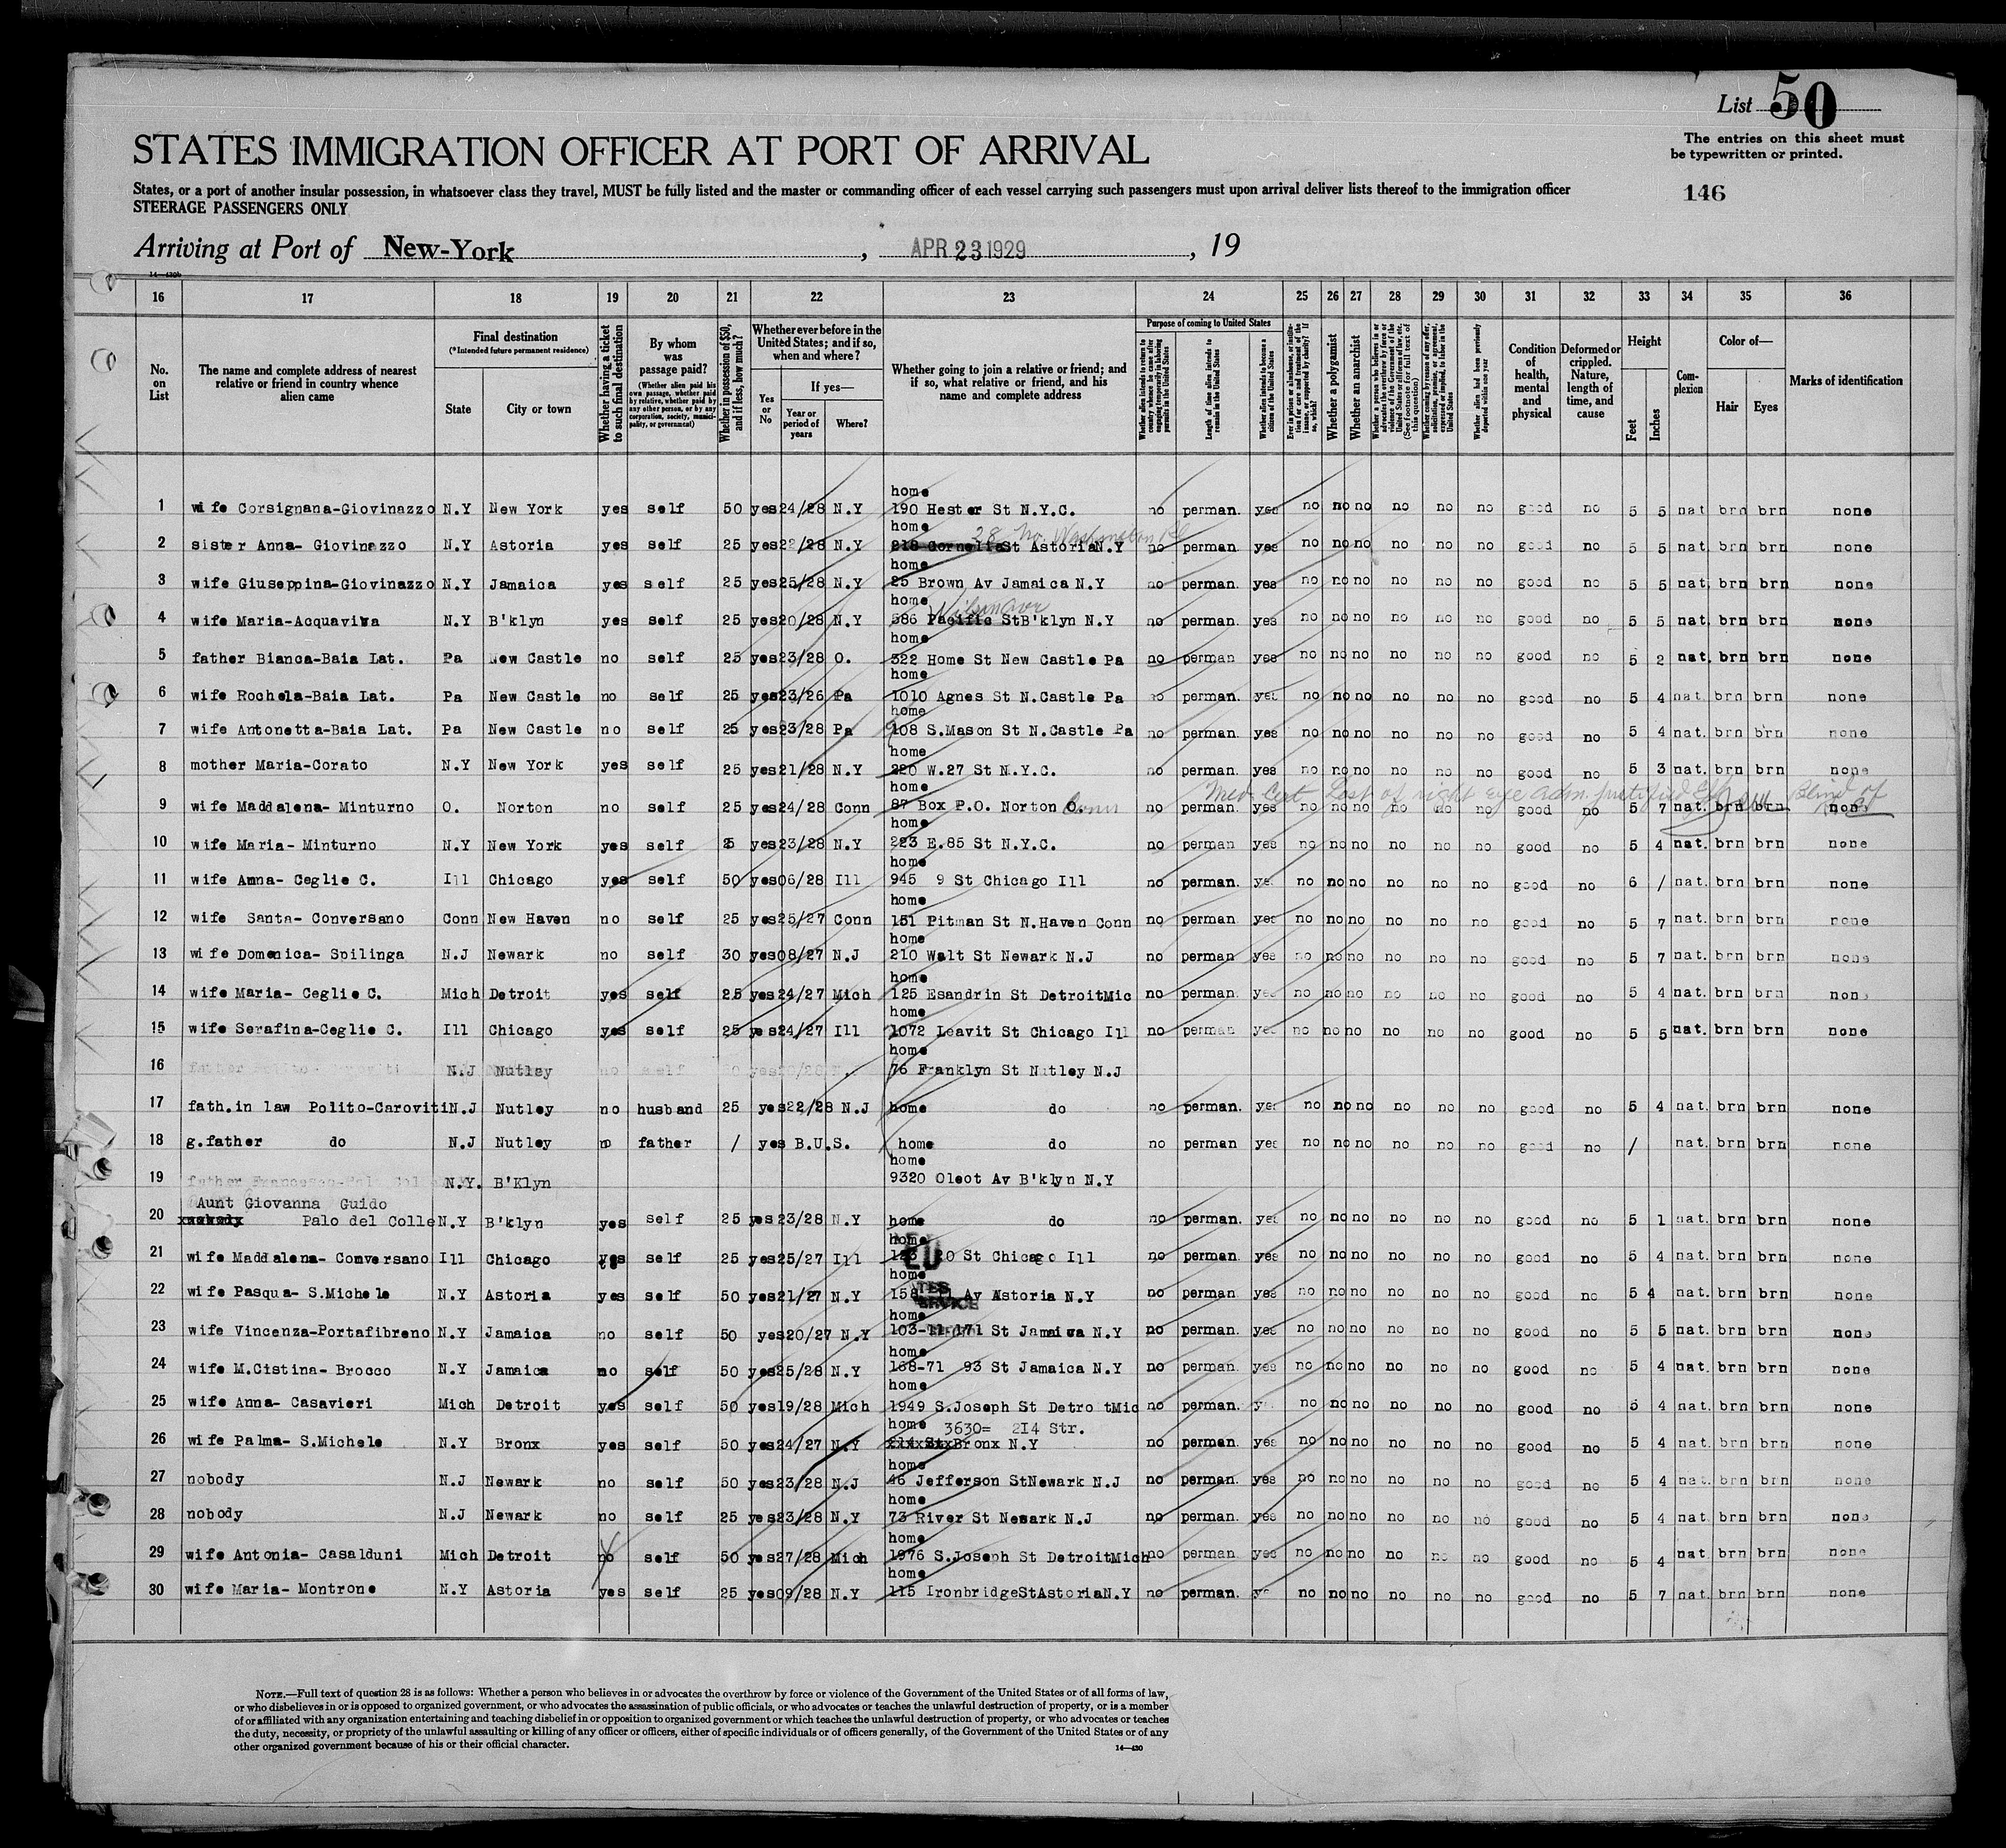 List 50
The entries on this sheet must
be typewritten or printed.
146
STATES IMMIGRATION OFFICER AT PORT OF ARRIVAL
States, or a port of another insular possession, in whatsoever class they travel, MUST be fully listed and the master or commanding officer of each vessel carrying such passengers must upon arrival deliver lists thereof to the immigration officer
STEERAGE PASSENGERS ONLY
Arriving at Port of New-York, APR 23 1929, 19
14—430b
16 17 18 19 20 21 22 23 24 25 26 27 28 29 30 31 32 33 34 35 36
No. on List
The name and complete address of nearest relative or friend in country whence alien came
Final destination (*Intended future permanent residence)
State
City or town
Whether having a ticket to such final destination
By whom was passage paid? (Whether alien paid his own passage, whether paid by relative, whether paid by any other person, or by any corporation, society, municipality, or government)
Whether in possession of $50, and if less, how much?
Whether ever before in the United States; and if so, when and where?
Yes or No
If yes—
Year or period of years
Where?
Whether going to join a relative or friend; and if so, what relative or friend, and his name and complete address
Purpose of coming to United States
Whether alien intends to return to country whence he came after engaging temporarily in laboring pursuits in the United States
Length of time alien intends to remain in the United States
Whether alien intends to become a citizen of the United States
Ever in prison or almshouse, or institution for care and treatment of the insane, or supported by charity? If so, which?
Whether a polygamist
Whether an anarchist
Whether a person who believes in or advocates the overthrow by force or violence of the Government of the United States or all forms of law, etc. (See footnote for full text of this question)
Whether coming by reason of any offer, solicitation, promise, or agreement, expressed or implied, to labor in the United States
Whether alien had been previously deported within one year
Condition of health, mental and physical
Deformed or crippled. Nature, length of time, and cause
Height
Feet
Inches
Complexion
Color of—
Hair
Eyes
Marks of identification
home
1 wife Corsignana-Giovinazzo N.Y New York yes self 50 yes 24/28 N.Y 190 Hester St N.Y.C. no perman. yes no no no no no no good no 5 5 nat brn brn none
home 28 No. Washington Pl
2 sister Anna- Giovinazzo N.Y Astoria yes self 25 yes 22/28 N.Y 218 Cornelia St Astoria N.Y no perman. yes no no no no no no good no 5 5 nat. brn brn none
home
3 wife Giuseppina-Giovinazzo N.Y Jamaica yes self 25 yes 25/28 N.Y 25 Brown Av Jamaica N.Y no perman. yes no no no no no no good no 5 5 nat. brn brn none
home Wilson Ave
4 wife Maria-Acquaviva N.Y B'klyn yes self 25 yes 20/28 N.Y 586 Pacific St B'klyn N.Y no perman. yes no no no no no no good no 5 5 nat. brn brn none
home
5 father Bianca-Baia Lat. Pa New Castle no self 25 yes 23/28 O. 322 Home St New Castle Pa no perman yes no no no no no no good no 5 2 nat. brn brn none
home
6 wife Rochela-Baia Lat. Pa New Castle no self 25 yes 23/26 Pa 1010 Agnes St N.Castle Pa no perman. yes no no no no no no good no 5 4 nat. brn brn none
home
7 wife Antonetta-Baia Lat. Pa New Castle no self 25 yes 23/28 Pa 108 S.Mason St N.Castle Pa no perman. yes no no no no no no good no 5 4 nat. brn brn none
home
8 mother Maria-Corato N.Y New York yes self 25 yes 21/28 N.Y 220 W.27 St N.Y.C. no perman. yes no no no no no no good no 5 3 nat. brn brn none
home Med. Cert Lost of right eye adm. Blind of
9 wife Maddalena- Minturno O. Norton no self 25 yes 24/28 Conn 87 Box P.O. Norton O. Conn no perman. yes no no no no no no good no 5 7 nat. brn brn none
home
10 wife Maria- Minturno N.Y New York yes self 25 yes 23/28 N.Y 223 E.85 St N.Y.C. no perman yes no no no no no no good no 5 4 nat. brn brn none
home
11 wife Anna- Ceglie C. Ill Chicago yes self 50 yes 06/28 Ill 945 9 St Chicago Ill no perman. yes no no no no no no good no 6 / nat. brn brn none
home
12 wife Santa- Conversano Conn New Haven no self 25 yes 25/27 Conn 151 Pitman St N.Haven Conn no perman. yes no no no no no no good no 5 7 nat. brn brn none
home
13 wife Domenica- Spilinga N.J Newark no self 30 yes 08/27 N.J 210 Walt St Newark N.J no perman yes no no no no no no good no 5 7 nat. brn brn none
home
14 wife Maria- Ceglie C. Mich Detroit yes self 25 yes 24/27 Mich 125 Esandrin St Detroit Mic no perman yes no no no no no no good no 5 4 nat. brn brn none
home
15 wife Serafina-Ceglie C. Ill Chicago yes self 25 yes 24/27 Ill 1072 Leavit St Chicago Ill no perman yes no no no no no no good no 5 5 nat. brn brn none
home
16 father N.J Nutley no self yes 76 Franklyn St Nutley N.J
17 fath.in law Polito-Caroviti N.J Nutley no husband 25 yes 22/28 N.J home do no perman. yes no no no no no no good no 5 4 nat. brn brn none
18 g.father do N.J Nutley no father / yes B.U.S. home do no perman yes no no no no no no good no / nat. brn brn none
home
19 father Francesco- N.Y. B'Klyn 9320 Oleot Av B'klyn N.Y
Aunt Giovanna Guido
20 nobody Palo del Colle N.Y B'klyn yes self 25 yes 23/28 N.Y home do no perman. yes no no no no no no good no 5 1 nat. brn brn none
home
21 wife Maddalena- Comversano Ill Chicago yes self 25 yes 25/27 Ill 0 St Chicago Ill no perman. yes no no no no no no good no 5 4 nat. brn brn none
home
22 wife Pasqua- S.Michele N.Y Astoria yes self 50 yes 21/27 N.Y Av Astoria N.Y no perman yes no no no no no no good no 5 4 nat. brn brn none
home
23 wife Vincenza-Portafibreno N.Y Jamaica no self 50 yes 20/27 N.Y 103-11-171 St Jamaica N.Y no perman. yes no no no no no no good no 5 5 nat. brn brn none
home
24 wife M.Cistina- Brocco N.Y Jamaica no self 50 yes 25/28 N.Y 168-71 93 St Jamaica N.Y no perman. yes no no no no no no good no 5 4 nat. brn brn none
home
25 wife Anna- Casavieri Mich Detroit yes self 50 yes 19/28 Mich 1949 S.Joseph St Detroit Mic no perman. no no no no no no good no 5 4 nat. brn brn none
home 3630= 214 Str.
26 wife Palma- S.Michele N.Y Bronx yes self 50 yes 24/27 N.Y Bronx N.Y no perman. yes no no no no no no good no 5 4 nat. brn brn none
home
27 nobody N.J Newark no self 50 yes 23/28 N.J 46 Jefferson St Newark N.J no perman. yes no no no no no no good no 5 4 nat. brn brn none
home
28 nobody N.J Newark no self 25 yes 23/28 N.Y 73 River St Newark N.J no perman. yes no no no no no no good no 5 4 nat. brn brn none
home
29 wife Antonia- Casalduni Mich Detroit no self 50 yes 27/28 Mich 1976 S.Joseph St Detroit Mich no perman yes no no no no no no good no 5 4 nat. brn brn none
home
30 wife Maria- Montrone N.Y Astoria yes self 25 yes 09/28 N.Y 115 Ironbridge St Astoria N.Y no perman. no no no no no no good no 5 7 nat. brn brn none
NOTE.—Full text of question 28 is as follows: Whether a person who believes in or advocates the overthrow by force or violence of the Government of the United States or of all forms of law,
or who disbelieves in or is opposed to organized government, or who advocates the assassination of public officials, or who advocates or teaches the unlawful destruction of property, or is a member
of or affiliated with any organization entertaining and teaching disbelief in or opposition to organized government or which teaches the unlawful destruction of property, or who advocates or teaches
the duty, necessity, or propriety of the unlawful assaulting or killing of any officer or officers, either of specific individuals or of officers generally, of the Government of the United States or of any
other organized government because of his or their official character.
14—430